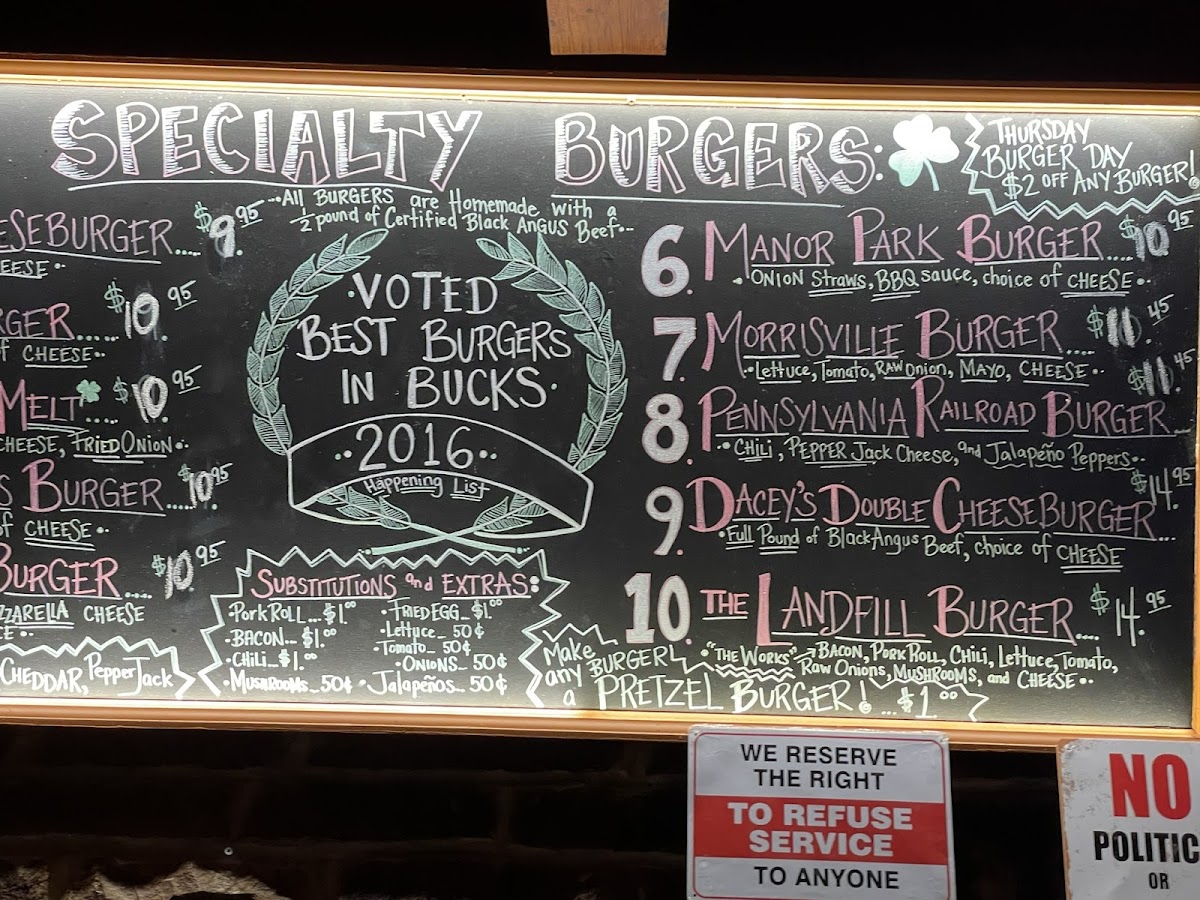 SPECIALTY BURGERS:
THURSDAY
BURGER DAY
$2 OFF ANY BURGER!
··All BURGERS are Homemade with a
½ pound of Certified Black Angus Beef··
ESEBURGER.... $9.95
EESE··
RGER..... $10.95
f CHEESE··
MELT $10.95
CHEESE, FRIED ONION··
S BURGER..... $10.95
of CHEESE··
BURGER.... $10.95
ZZARELLA CHEESE
CE··
CHEDDAR, Pepper Jack
·VOTED
BEST BURGERS
IN BUCKS·
··2016··
Happening List
SUBSTITUTIONS and EXTRAS:
·Pork Roll...$1.00
·BACON..$1.00
·Chili..$1.00
·MUSHROOMS..50¢
·FRIED EGG..$1.00
·Lettuce..50¢
·Tomato..50¢
·ONIONS..50¢
·Jalapeños..50¢
6. MANOR PARK BURGER.... $10.95
·ONION Straws, BBQ sauce, choice of CHEESE··
7. MORRISVILLE BURGER.... $11.45
··Lettuce, Tomato, RAW Onion, MAYO, CHEESE··
8. PENNSYLVANIA RAILROAD BURGER... $11.45
·CHILI, PEPPER Jack Cheese, and Jalapeño Peppers··
9. DACEY'S DOUBLE CHEESEBURGER... $14.95
·Full Pound of Black Angus Beef, choice of CHEESE
10. THE LANDFILL BURGER.... $14.95
·"THE WORKS" → BACON, PORK ROLL, Chili, Lettuce, Tomato,
Raw Onions, MUSHROOMS, and CHEESE··
Make
any BURGER
a PRETZEL BURGER!...$1.00
WE RESERVE
THE RIGHT
TO REFUSE
SERVICE
TO ANYONE
NO
POLITIC
OR